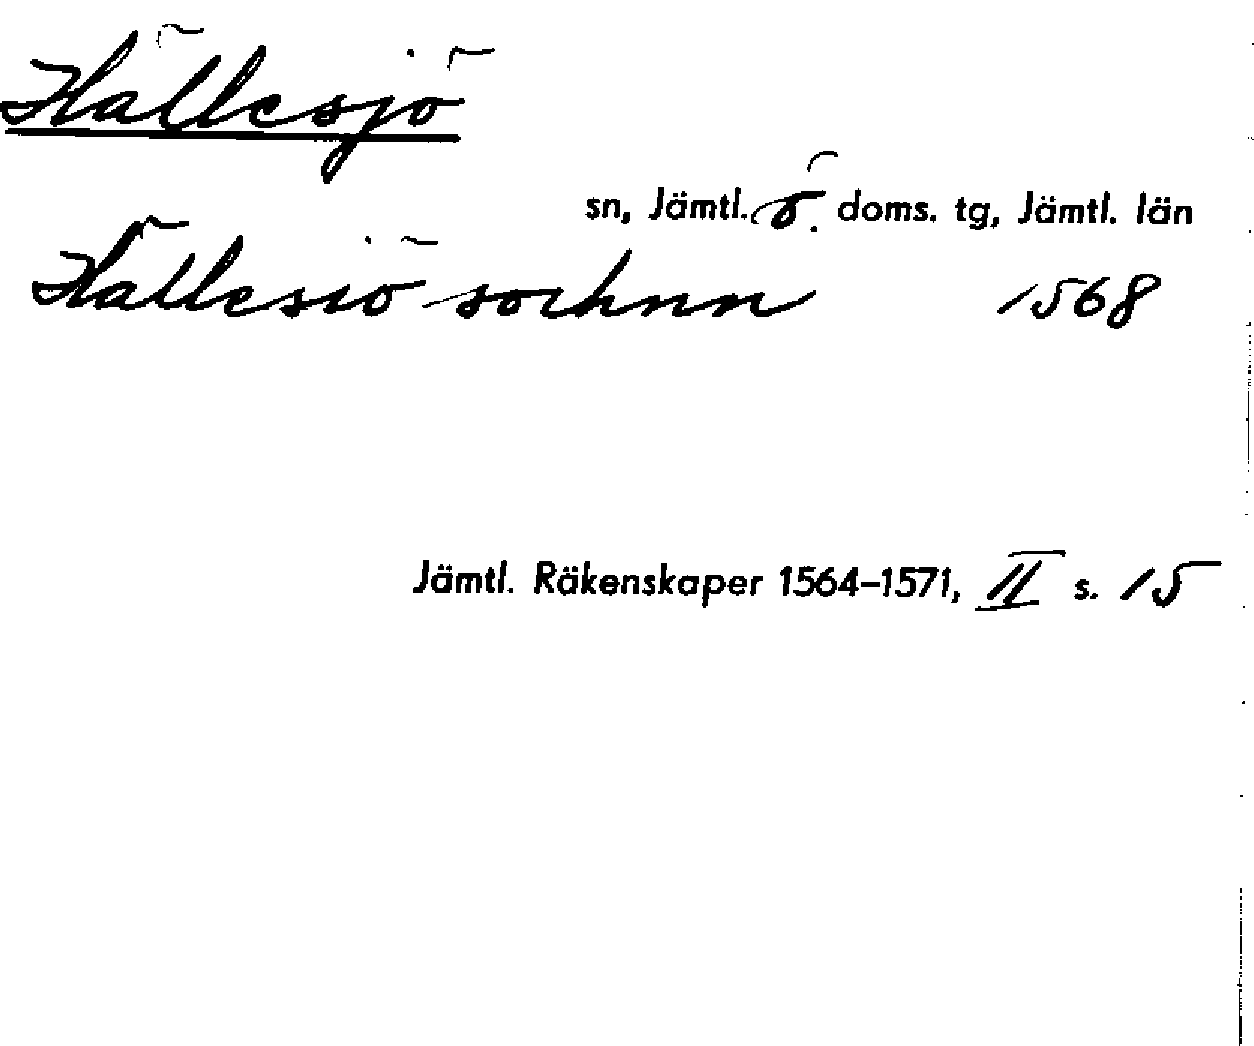 Hällesjö
sn, Jämtl. ö. doms. tg, Jämtl. län
Hällesiö sochnn 1568
Jämtl. Räkenskaper 1564–1571, II s. 15